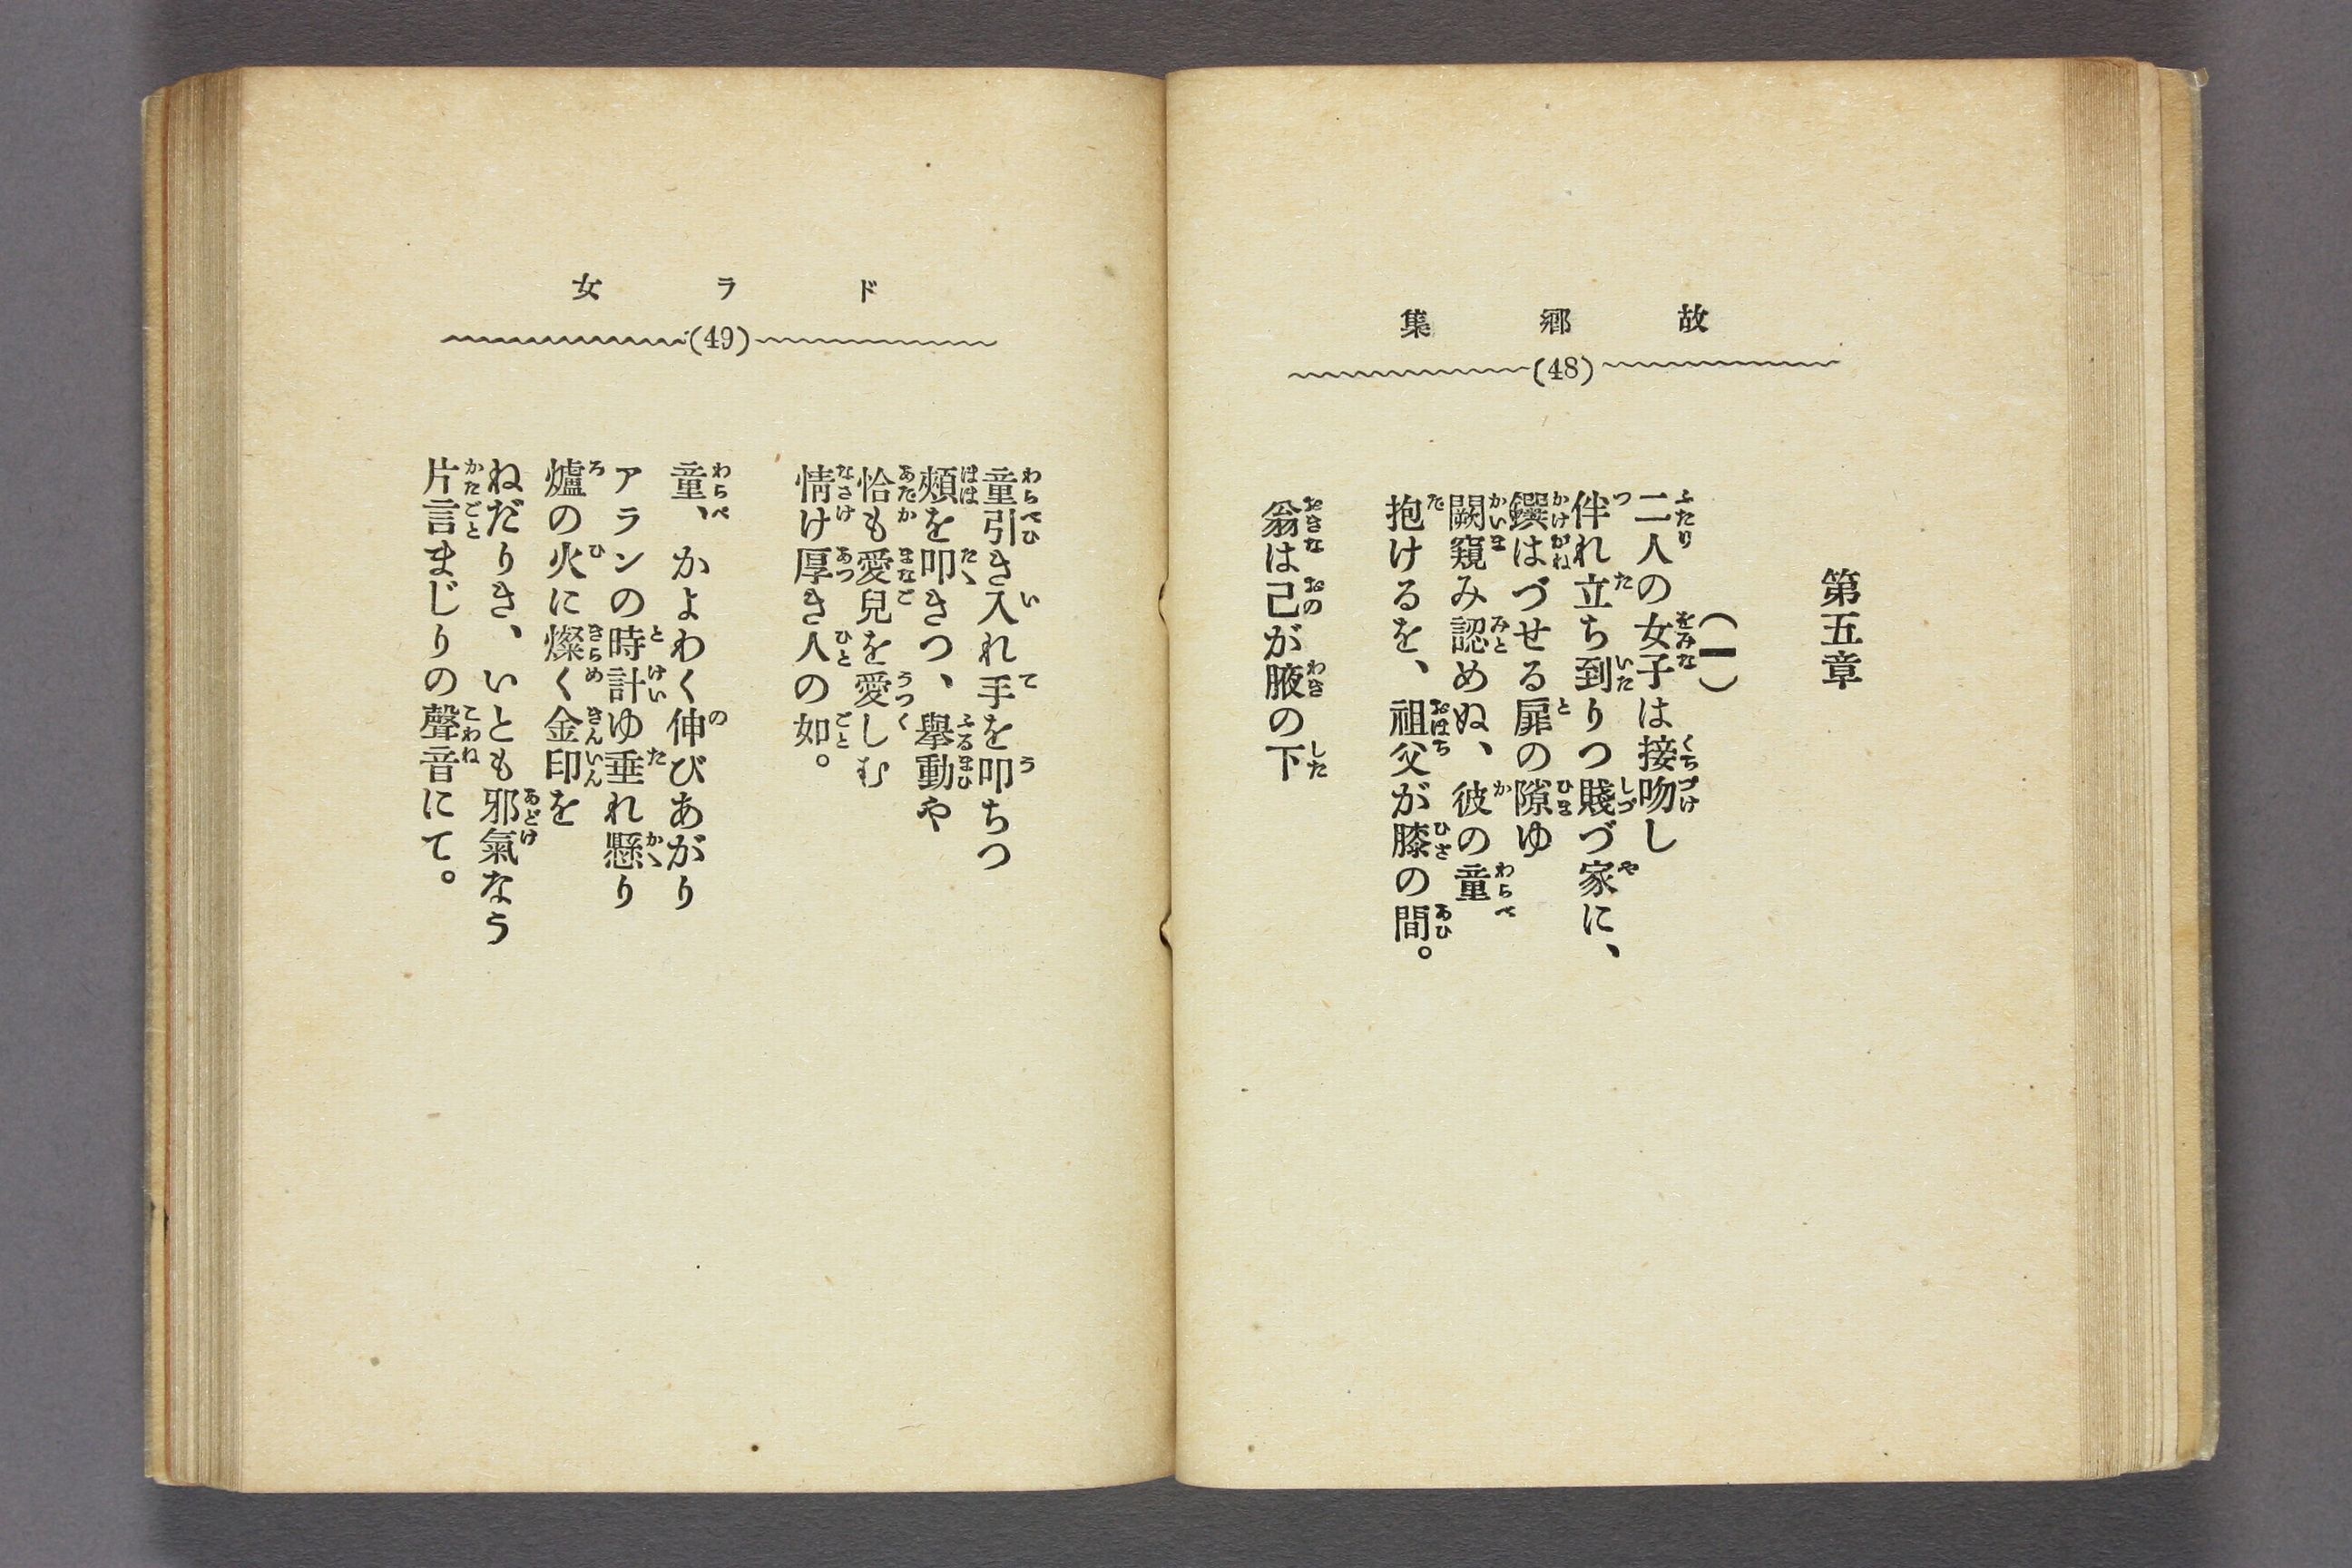 故郷集
(48)
第五章
(一)
二人の女子は接吻し
伴れ立ち到りつ賤づ家に、
鐉はづせる扉の隙ゆ
闚窺み認めぬ、彼の童
抱けるを、祖父が膝の間。
翁は己が腋の下
ドラ女
(49)
童引き入れ手を叩ちつ
頬を叩きつ、擧動や
恰も愛兒を愛しむ
情け厚き人の如。
童、かよわく伸びあがり
アランの時計ゆ垂れ懸り
爐の火に燦く金印を
ねだりき、いとも邪氣なう
片言まじりの聲音にて。